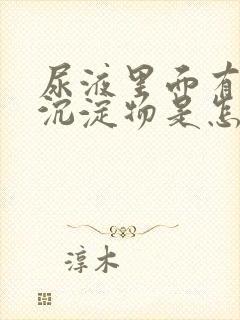 尿液里面有
沉淀物是怎
淳木